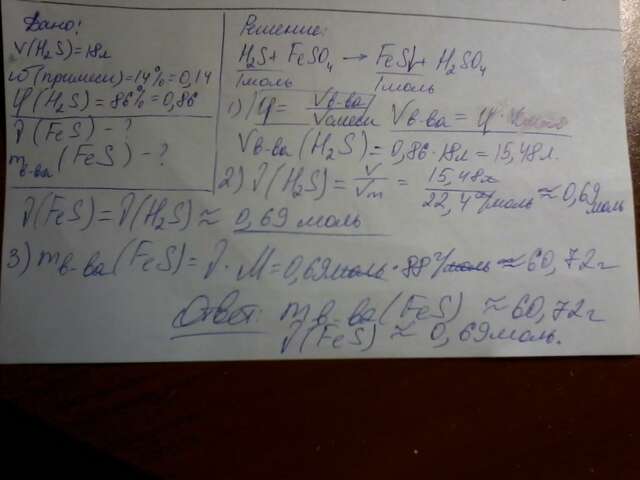 Дано:
V(H₂S)=18л
ω(примеси)=14%=0,14
φ(H₂S)=86%=0,86
ν(FeS)-?
m в-ва(FeS)-?
Решение:
H₂S+FeSO₄→FeS↓+H₂SO₄
1моль 1моль
1) φ=Vв-ва/Vсмеси Vв-ва=φ·
Vв-ва(H₂S)=0,86·18л=15,48л.
2) ν(H₂S)=V/Vm=15,48л/22,4л/моль≈0,69 моль
ν(FeS)=ν(H₂S)≈0,69 моль
3) mв-ва(FeS)=ν·M=0,69моль·88г/моль≈60,72г
Ответ: mв-ва(FeS)≈60,72г
ν(FeS)≈0,69моль.